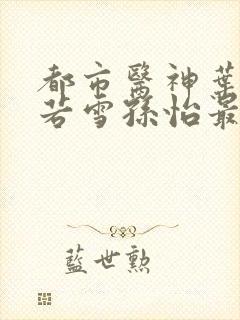 都市醫神葉
若雪孫怡最
藍世勲